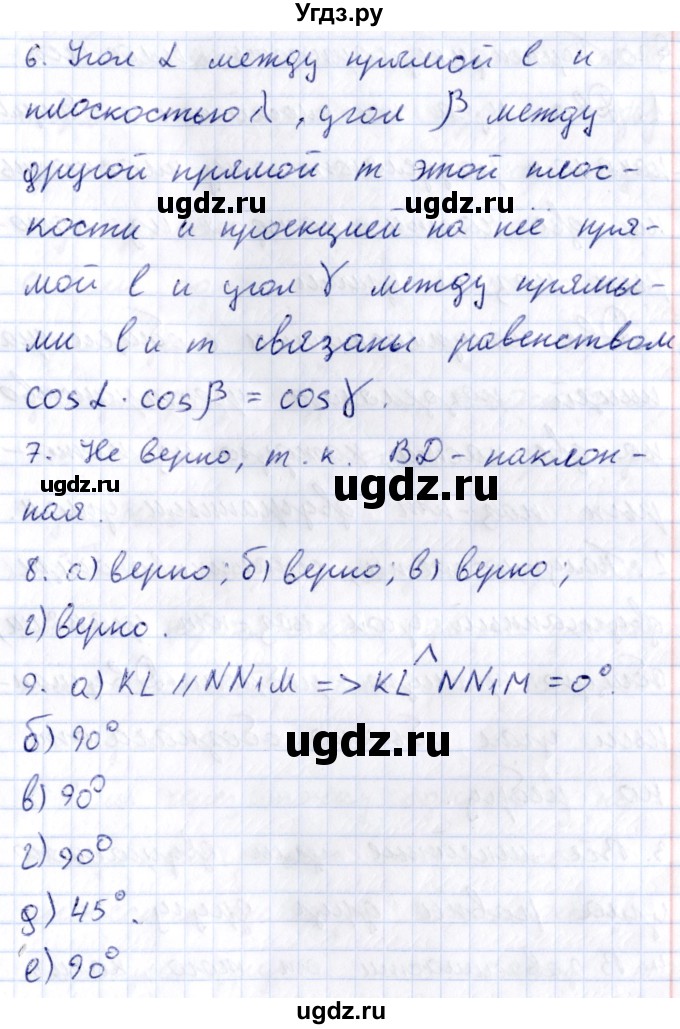 Угдз.ру
6. Угол α между прямой l и
плоскостью λ, угол β между
другой прямой m этой плос-
ugdz.ru ugdz.ru
кости и проекцией на неё пря-
мой l и угол γ между прямы-
ми l и m связаны равенством
cos α · cos β = cos γ.
7. Не верно, т.к. BD - наклон-
ugdz.ru ugdz.ru
ная.
8. а) верно; б) верно; в) верно;
г) верно.
9. а) KL // NN₁M => KL^NN₁M = 0°.
ugdz.ru
б) 90°
в) 90°
г) 90°
ugdz.ru ugdz.ru
д) 45°.
е) 90°
ugdz.ru